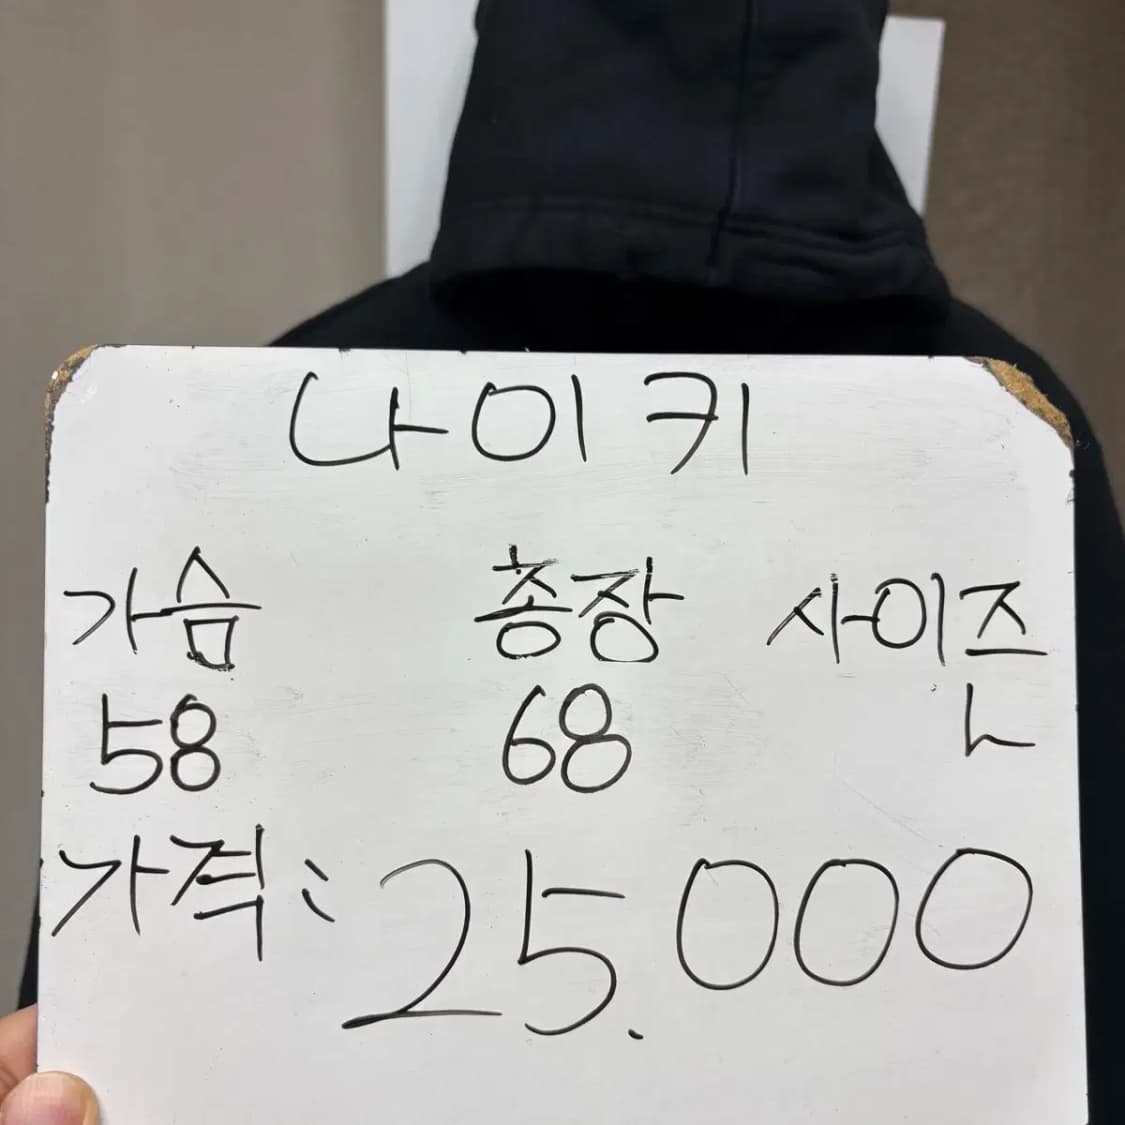 나이키
가슴 총장 사이즈
58 68 L
가격: 25.000